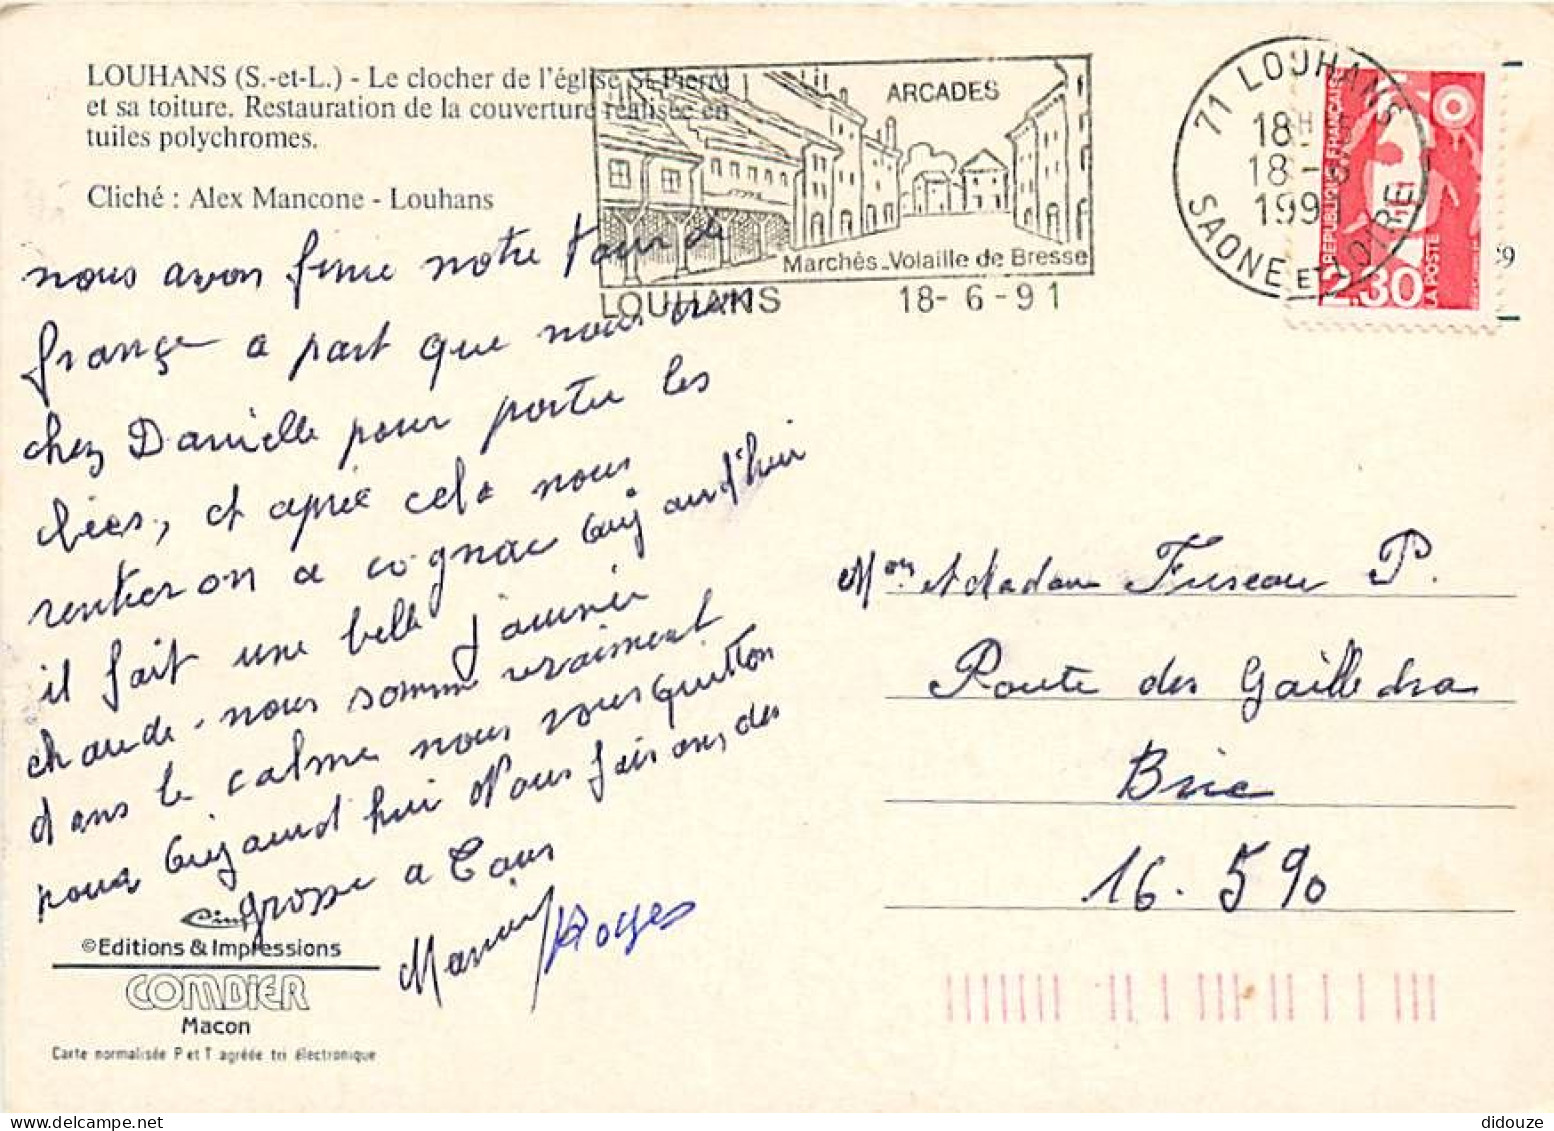 LOUHANS (S.-et-L.) - Le clocher de l'église St-Pierre
et sa toiture. Restauration de la couverture réalisée en
tuiles polychromes.
Cliché : Alex Mancone - Louhans
ARCADES
Marchés_Volaille de Bresse
LOUHANS 18-6-91
71 LOUHANS
18H
18-6
199
SAONE ET LOIRE
REPUBLIQUE FRANÇAISE
2,30
LA POSTE
nous avon finie notre tour de
françe a part que nous
chez Danielle pour porter les
clées, et après cela nous
rentreron a cognac aujourd'hui
il fait une belle journée
chaude. nous somme vraiment
dans le calme nous vous quitton
pour aujourd'hui Nous faisons des
grosse a Tous
Mor et Madame Fuseau P.
Route des
Brie
16.590
©Editions & Impressions
COMBIER
Macon
Carte normalisée P et T agréée tri électronique
didouze